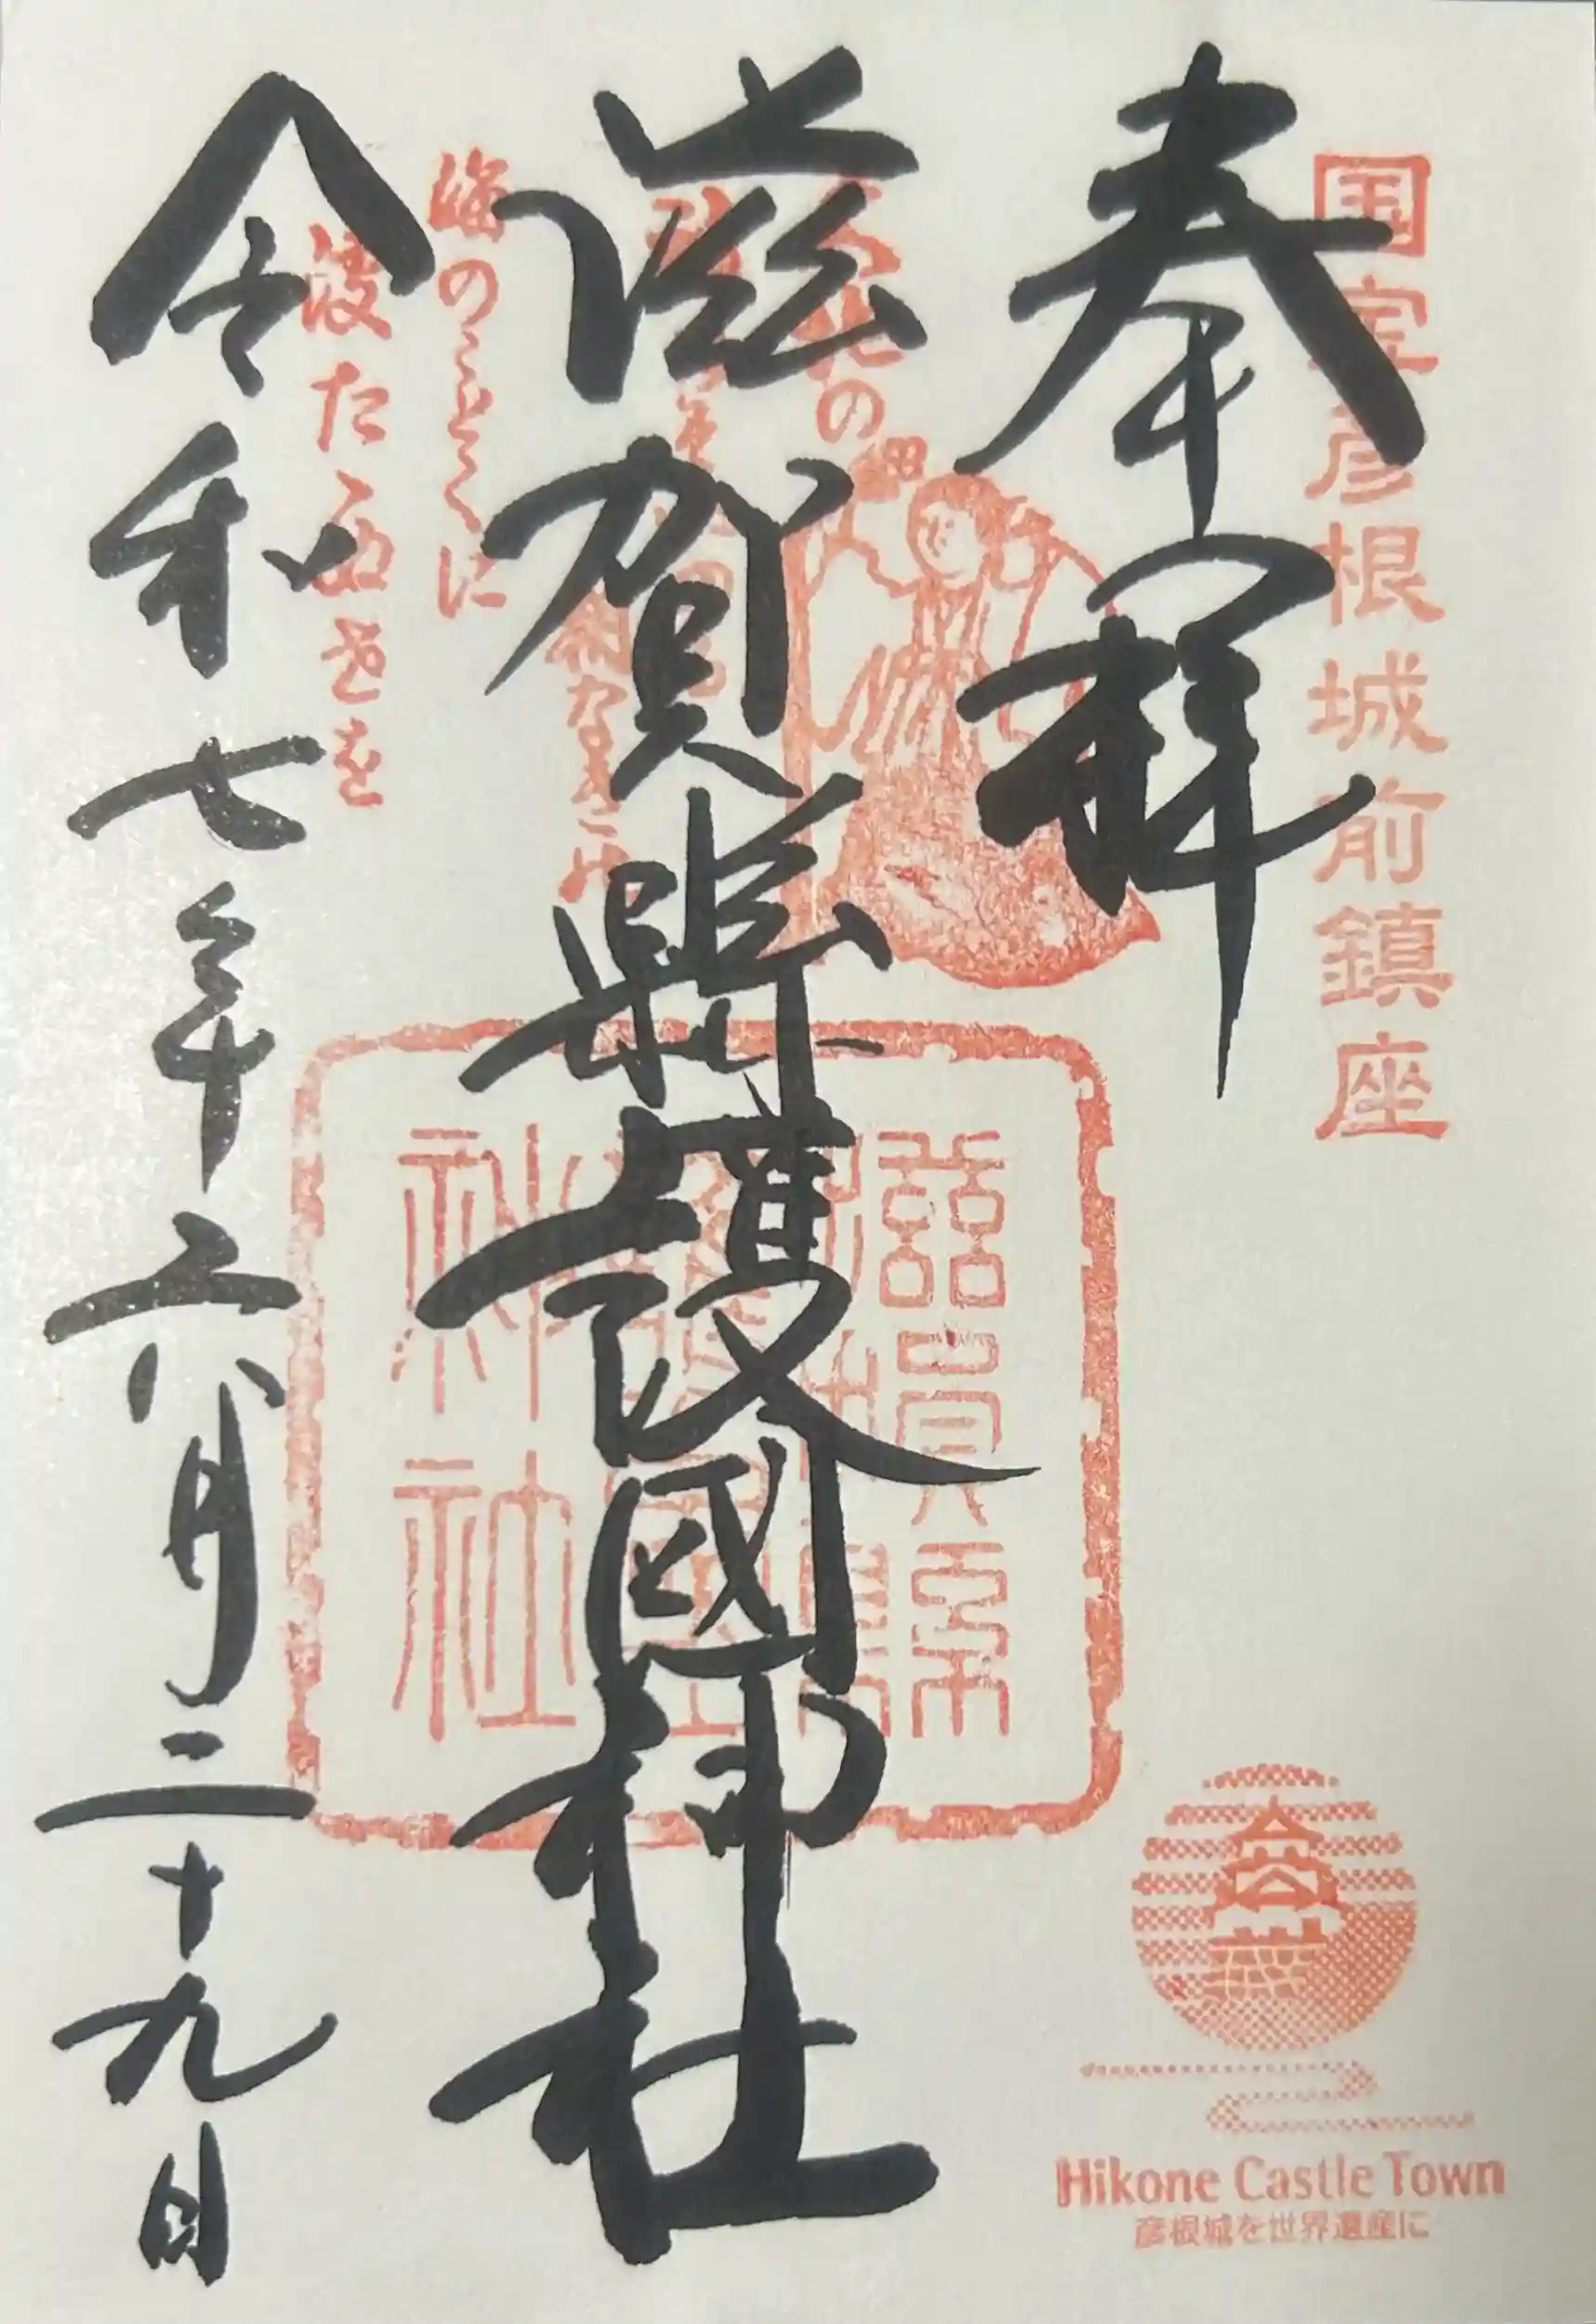 国宝彦根城前鎮座
奉拝
滋賀縣護國神社
海のことくに
渡たるぬさを
令和七年六月二十九日
滋賀縣
護國
神社
Hikone Castle Town
彦根城を世界遺産に